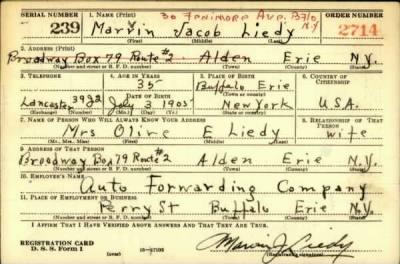 SERIAL NUMBER 1. NAME (Print) 30 Fenimore Ave. Bflo N.Y. ORDER NUMBER
239 Marvin Jacob Liedy 2714
(First) (Middle) (Last)
2. ADDRESS (Print)
Broadway Box 79 Route #2 Alden Erie N.Y.
(Number and street or R. F. D. number) (Town) (County) (State)
3. TELEPHONE 4. AGE IN YEARS 5. PLACE OF BIRTH 6. COUNTRY OF CITIZENSHIP
35 Buffalo Erie
DATE OF BIRTH (Town or county)
Lancaster 3922 July 3 1905 New York U.S.A.
(Exchange) (Number) (Mo.) (Day) (Yr.) (State or country)
7. NAME OF PERSON WHO WILL ALWAYS KNOW YOUR ADDRESS 8. RELATIONSHIP OF THAT PERSON
Mrs Olive E Liedy wife
(Mr., Mrs., Miss) (First) (Middle) (Last)
9. ADDRESS OF THAT PERSON
Broadway Box 79 Route #2 Alden Erie N.Y.
(Number and street or R. F. D. number) (Town) (County) (State)
10. EMPLOYER'S NAME
Auto Forwarding Company
11. PLACE OF EMPLOYMENT OR BUSINESS
Perry St Buffalo Erie N.Y.
(Number and street or R. F. D. number) (Town) (County) (State)
I AFFIRM THAT I HAVE VERIFIED ABOVE ANSWERS AND THAT THEY ARE TRUE.
REGISTRATION CARD
D. S. S. Form 1 Marvin J Liedy
(Registrant's signature)